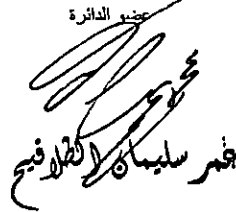 عضو الدائرة
عمر سليمان الطلافيح